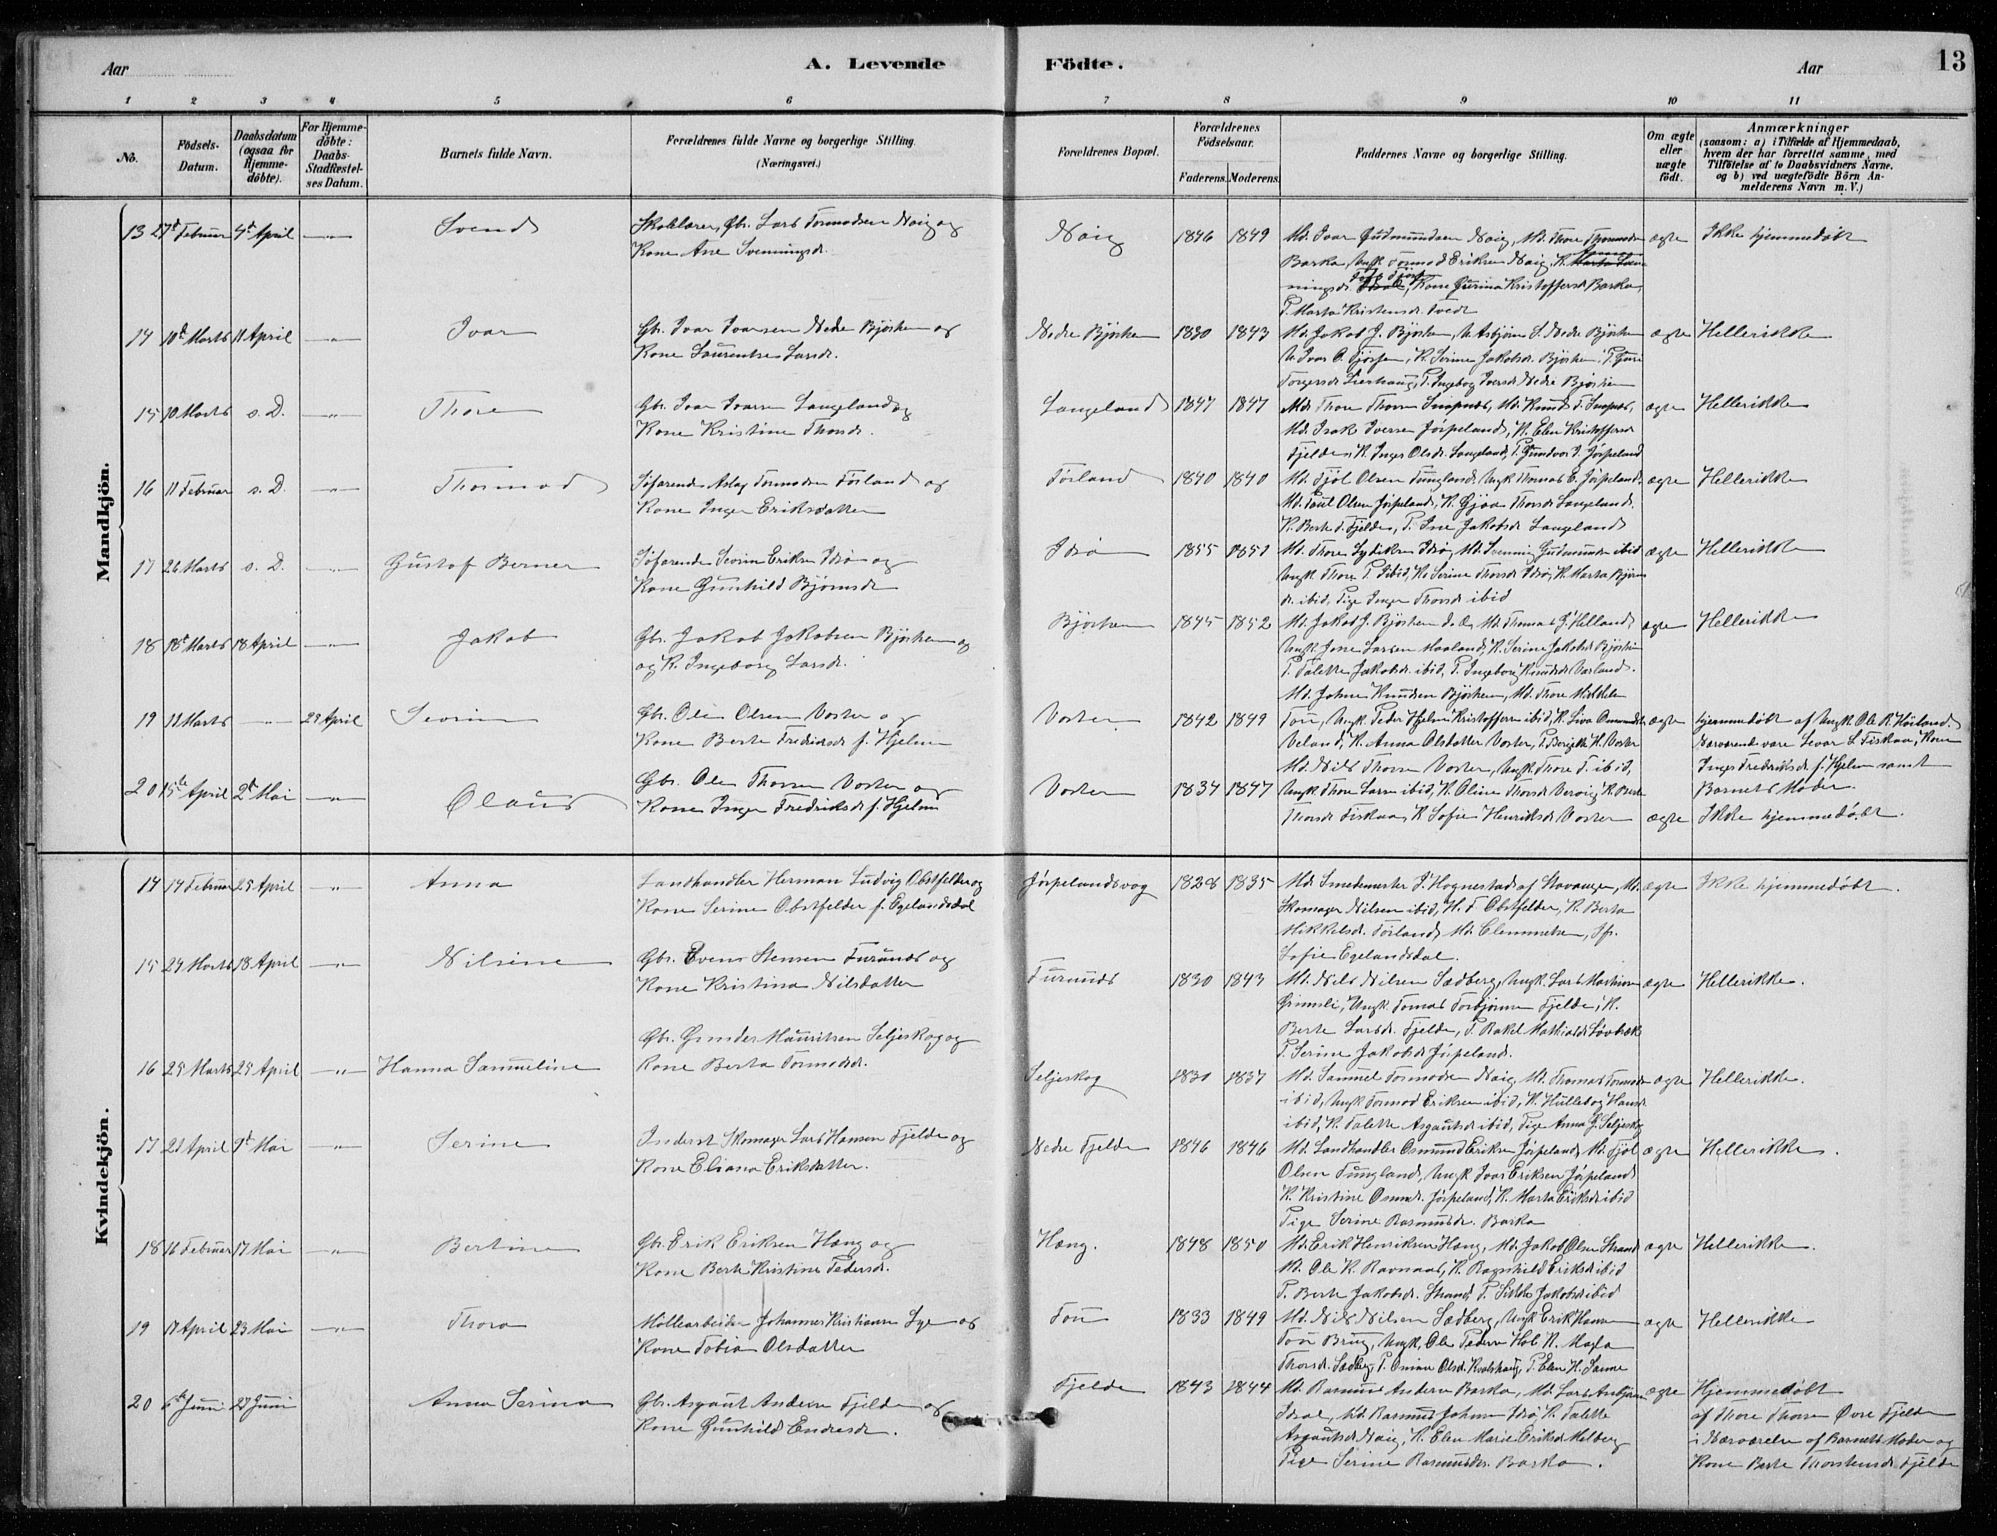 Aar
A. Levende
Födte.
Aar
13
1 2 3 4 5 6 7 8 9 10 11
No.
Födsels-Datum.
Daabsdatum (ogsaa for Hjemme-döbte).
For Hjemme-döbte: Daabs-Stadfæstel-ses Datum.
Barnets fulde Navn.
Forældrenes fulde Navne og borgerlige Stilling.
(Næringsvei.)
Forældrenes Bopæl.
Forældrenes Födselsaar.
Faderens. Moderens.
Faddernes Navne og borgerlige Stilling.
Om ægte eller uægte födt.
Anmærkninger
(saasom: a) i Tilfælde af Hjemmedaab,
hvem der har forrettet samme, med
Tilföielse af to Daabsvidners Navne.
og b) ved uægtefödte Börn An-
melderens Navn m. V.)
Mandkjön.
13 27d Februar 4de April —"— Svend
Skolelærer, Gbr. Lars Tormodsen Naig og
Kone Ane Svenningsdr.
Naig 1846 1849
Md. Ivar Gudmundsen Naig, Md. Thore Thormodsen
Barka, Ungk. Tormod Eriksen Naig, K.
Kone Gurina Kristoffersdr Barka,
P. Marta Kristensdr. Tvedt
ægte Ikke hjemmedøbt
14 10d Marts 11 April —"— Ivar
Gbr. Ivar Ivarsen Nedre Bjørheim og
Kone Laurentse Larsdr.
Nedre Bjørheim 1830 1843
Md. Jakob J. Bjørheim, U. Asbjørn S. Nedre Bjørheim
K. Serine Jakobsdr. Bjørheim, P. Guri
Torgersdr. Lierhaug, P. Ingebog Iversdr Nedre Bjørheim
ægte Hellerikke
15 10 Marts s. D. —"— Thore
Gbr. Ivar Ivarsen Langeland og
Kone Kristine Thorsdr.
Langeland 1847 1847
Md. Thore Thorsen Md. Knud T.
Md. Isak Iversen Jørpeland, K. Elen Kristoffersdr
Fjelde, K. Inger Olsdr. Langeland, P. Gundvor I. Jørpeland
ægte Hellerikke
16 11 Februar s. D. —"— Thormod
Søfarende Aslag Tormodsen Førland og
Kone Inger Eriksdatter
Førland 1840 1840
Md. Fjøl Olsen Tungland, Ungk. Thomas E. Jørpeland.
Md. Paul Olsen Jørpeland, K. Gjøa Thorsdr Langeland.
K. Berte T. Fjelde, P. Ine Jakobsdr Langeland
ægte Hellerikke
17 26 Marts s. D. —"— Gustof Berner
Søfarende Sevrin Eriksen Idsø og
Kone Gunhild Bjørnsdr
Idsø 1855 1851
Md. Thore Sydiksen Idsø, Md. Svenning Gudmundsen ibid
Ungk. Thore T. Ibid, K. Serine Thorsdr Idsø, K. Marta Bjørns
dr. ibid, Pige Inger Thorsdr ibid
ægte Hellerikke
18 18d Marts 18 April —"— Jakob
Gbr. Jakob Jakobsen Bjørheim og
og K. Ingeborg Larsdr.
Bjørheim 1845 1852
Md. Jakob J. Bjørheim d. Æ, Md. Thomas G. Helland
Ungk. Jone Larsen Haaland, K. Serine Jakobsdr Bjørheim
P. Talette Jakobsdr. ibid, P. Ingeborg Knudsdr Varland.
ægte Hellerikke
19 11 Marts —"— 29 April Sevrin
Gbr. Ole Olsen Voster og
Kone Berte Fredriksdr f. Hjelm
Voster 1842 1849
Md. Johne Knudsen Bjørheim, Md. Thore
Tou, Ungk. Peder Hjelm Kristoffersen ibid, K. Siva Osmundsdr.
Veland, K. Anna Olsdatter Voster, P. Borgitte H. Voster
ægte hjemmedøbt af Ungk. Ole K. Høiland.
Nærværende vare Sevar S. Fiskaa, Kone
Inger Fredriksdr. f. Hjelm samt
Barnets Moder.
20 15de April 2d Mai —"— Olaus
Gbr. Ole Thorsen Voster og
Kone Inger Fredriksdr f. Hjelm
Voster 1837 1847
Md. Nils Thorsen Voster, Ungk. Thore T. ibid,
Ungk. Thore Larsen ibid, K. Oline Thorsdr K. Berte
Thorsdr Fiskaa, K. Sofie Henriksdr Voster
ægte Ikke hjemmedøbt.
Kvindekjön.
14 14 Februar 25 April —"— Anna
Landhandler Herman Ludvig Obstfelder og
Kone Serine Obstfelder f. Egelandsdal
Jørpelandsvog 1828 1835
Md. Smedemester P. Hognestad af Stavanger, Md.
Skomager Nilsen ibid, H. F. Obstfelder, K. Berta
Mikkelsdr. Førland, Md. Clemmetsen, Jfr.
Sofie Egelandsdal.
ægte Ikke hjemmedøbt.
15 24 Marts 18 April —"— Nilsine
Gbr. Even Stensen Furunes og
Kone Kristina Nilsdatter
Furunes 1830 1843
Md. Nils Nilsen Sædberg, Ungk. Lars
Grimsli, Ungk. Tomas Torbjørnsen Fjelde, K.
Berte Larsdr. Fjelde, P. Rakel Mathiasdr Løvbæk
P. Serine Jakobsdr Jørpeland.
ægte Hellerikke.
16 25 Marts 25 April —"— Hanna Sammeline
Gbr. Gunder Mauritsen Seljeskog og
Kone Berta Tormodsdr.
Seljeskog 1830 1837
Md. Samuel Tormodsen Naig, Md. Thomas Tormodsen
ibid, Ungk. Tormod Eriksen ibid, K. Hullebog Hansdr
ibid, K. Talette Asgautsdr ibid, Pige Anna G. Seljeskog
ægte Hellerikke.
17 21 April 9d Mai —"— Serine
Inderst Skomager Lars Hansen Fjelde og
Kone Eliana Eriksdatter.
Nedre Fjelde 1846 1846
Md. Landhandler Osmund Eriksen Jørpeland, Md. Fjøl
Olsen Tungland, Ungk. Ivar Eriksen Jørpeland
K. Kristine Osmdr. Jørpeland, K. Marta Eriksdr ibid
Pige Serine Rasmusdr. Barka
ægte Hellerikke.
18 16 Februar 17 Mai —"— Bertine
Gbr. Erik Eriksen Hæng og
Kone Berte Kristine Pedersdr.
Hæng. 1848 1850
Md. Erik Henriksen Hæng, Md. Jakob Olsen Strand
Md. Ole K. Ravnaas, K. Ragnhild Eriksdr ibid
P. Berte Jakobsdr. Strand, P. Sille Jakobsdr ibid
ægte Hellerikke.
19 17 April 23 Mai —"— Thora
Møllearbeider Johannes Kristiansen Lye og
Kone Tobia Olsdatter
Tou 1833 1849
Md. Nils Nilsen Sædberg, Ungk. Erik Hansen
Tou Brug, Ungk. Ole Pedersen K.
Thorsdr. Sædberg, P. Omine Olsdr. P. Elen H.
ægte Hellerikke
20 6de Juni 27 Juni Anna Serina
Gbr. Asgaut Andersen Fjelde og
Kone Gunhild Endresdr.
Fjelde 1843 1844
Md. Rasmus Andersen Barka, Md. Lars Asbjørnsen
Idsal, Md. Rasmus Johnsen Idsø, K. Talette
Asgautsdr Naig, K. Elen Marie Eriksdr Melberg
Pige Serine Rasmusdr. Barka.
ægte Hjemmedøbt
af Thore Thorsen Øvre Fjelde
i Nærværelse af Barnets Moder og
Kone Berte Thorstensdr Fjelde